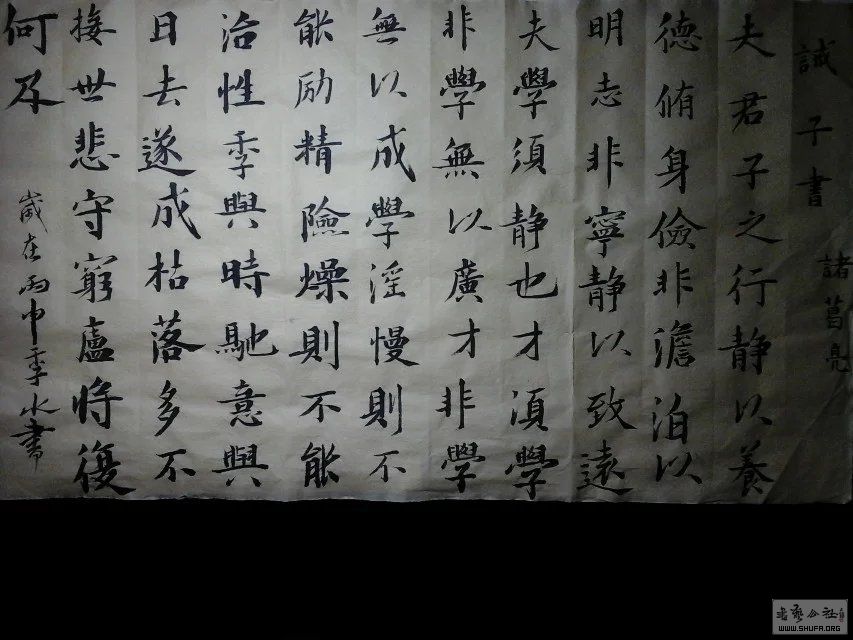 誡子書 諸葛亮
夫君子之行静以養
德脩身儉非澹泊以
明志非寧静以致遠
夫學須静也才須學
非學無以廣才非學
無以成學淫慢則不
能励精險燥則不能
治性秊與時馳意與
日去遂成枯落多不
接世悲守窮廬將復
何及
歲在丙申秊水書
書藝公社
WWW.SHUFA.ORG